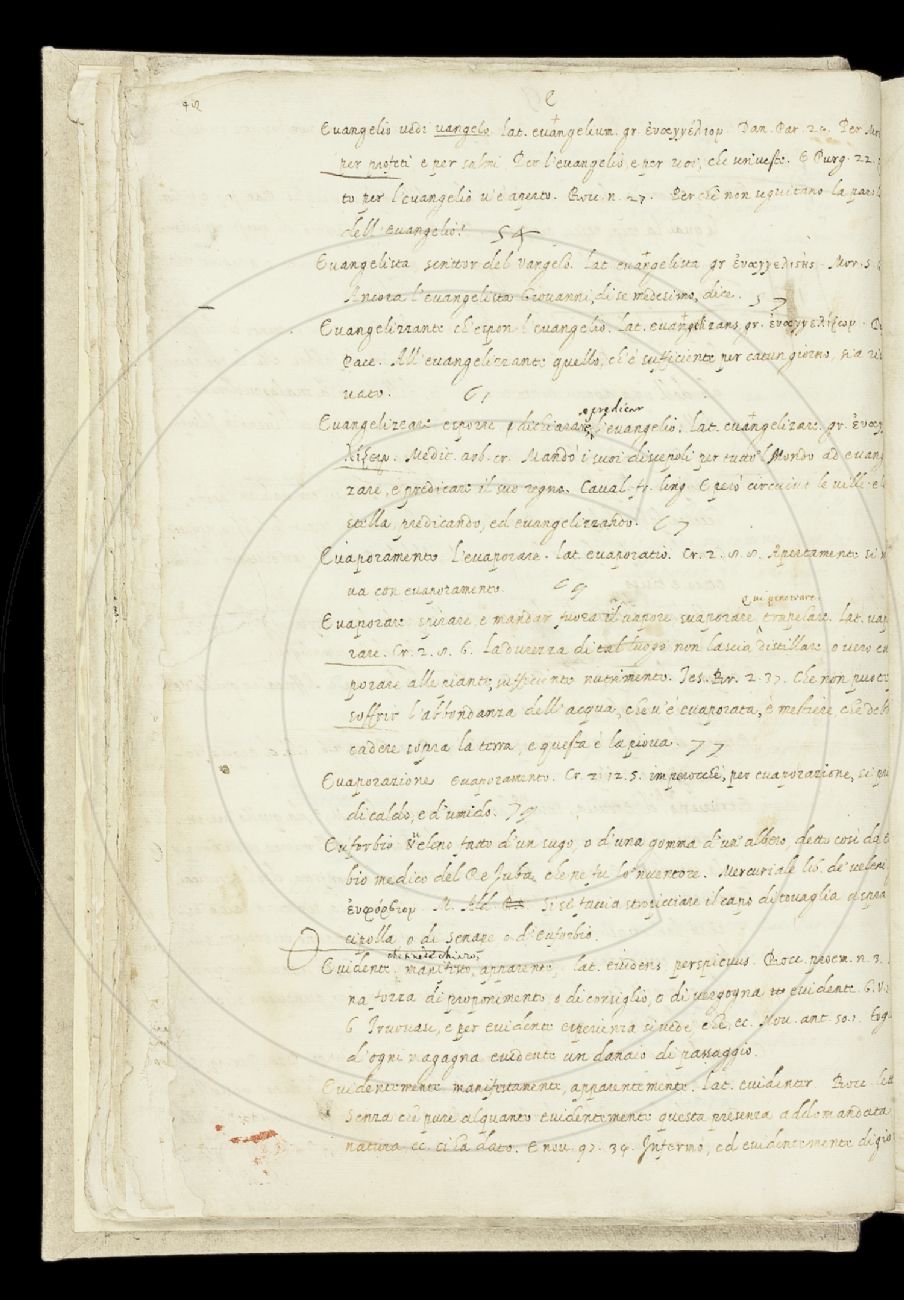 E
Euangelio uedi uangelo lat. euangelium. gr. ἐυαγγέλιομ. Dan. Par. 24. Per
per profeti e per salmi Per l'euangelio, e per uoi, che scriueste. E Purg. 22.
to per l'euangelio u'è aperto. Bocc. n. 27. Perchè non seguitano la
dell'euangelio? 54
Euangelista scrittor del Vangelo. lat. euangelista gr. ἐυαγγελιϛής. Mor. S.
Ancora l'euangelista Giouanni, di se medesimo, dice. 57
Euangelizzante ch'espon l'euangelio. Lat. euangelizans, gr. ἐυαγγελίζωμ.
Pace. All'euangelizzante quello, ch'è sufficiente per catun giorno, sia
uato. 61
Euangelizzare esporre, dichiarare, o predicar l'euangelio. lat. euangelizare. gr. ἐυαγγ
λίζειμ. Medit. arb. cr. Mandò i suoi discepoli per tutto 'l Mondo ad euang
zare, e predicare il suo regno. Caual. fr. ling. E però circuiua le uille
stella, predicando, ed euangelizzando. 67
Euaporamento l'euaporare. lat. euaporatio. Cr. 2. 8. 8. Apertamente si
ua con euaporamento. 69
Euaporare spirare e mandar fuora il uapore suaporare, qui penetrare trapelare. lat. uap
rare. Cr. 2. 8. 6. La durezza di tal luogo non lascia distillare, o uero eu
porare alle piante, sufficiente nutrimento. Tes. Br. 2. 37. Che non puote
soffrir l'abbondanza dell'acqua, che u'è euaporata, è mestiere, che
cadere sopra la terra, e questa è la pioua. 77
Euaporazione euaporamento. Cr. 2. 12. 5. imperocchè, per euaporazione, si
di caldo, e d'umido. 79
Euforbio Veleno tratto d'un sugo, o d'una gomma d'un albero detto così da
bio medico del Re Juba, che ne fu lo 'nuentore. Mercuriale lib. de' ueleni
ἐυφόρβιομ. M. Ald. Si se faccia strofinare il capo di touaglia aspra
cipolla, o di senape o d'euforbio.
Euidente che uale chiaro, manifesto, apparente, lat. euidens, perspicuus. Bocc. proem. n. 3.
na forza di proponimento, o di consiglio, o di uergogna euidente. G. V.
6 Truouasi, e per euidente esperienza si uede, che, ec. Nou. ant. 50. 1.
d'ogni magagna euidente un danaio di passaggio.
Euidentemente manifestamente, apparentemente. lat. euidenter. Bocc. lett
Senza che pure alquanto euidentemente questa presenza addomandata
natura, ec. ci ha dato. E nou. 97. 34. Infermo, ed euidentemente di